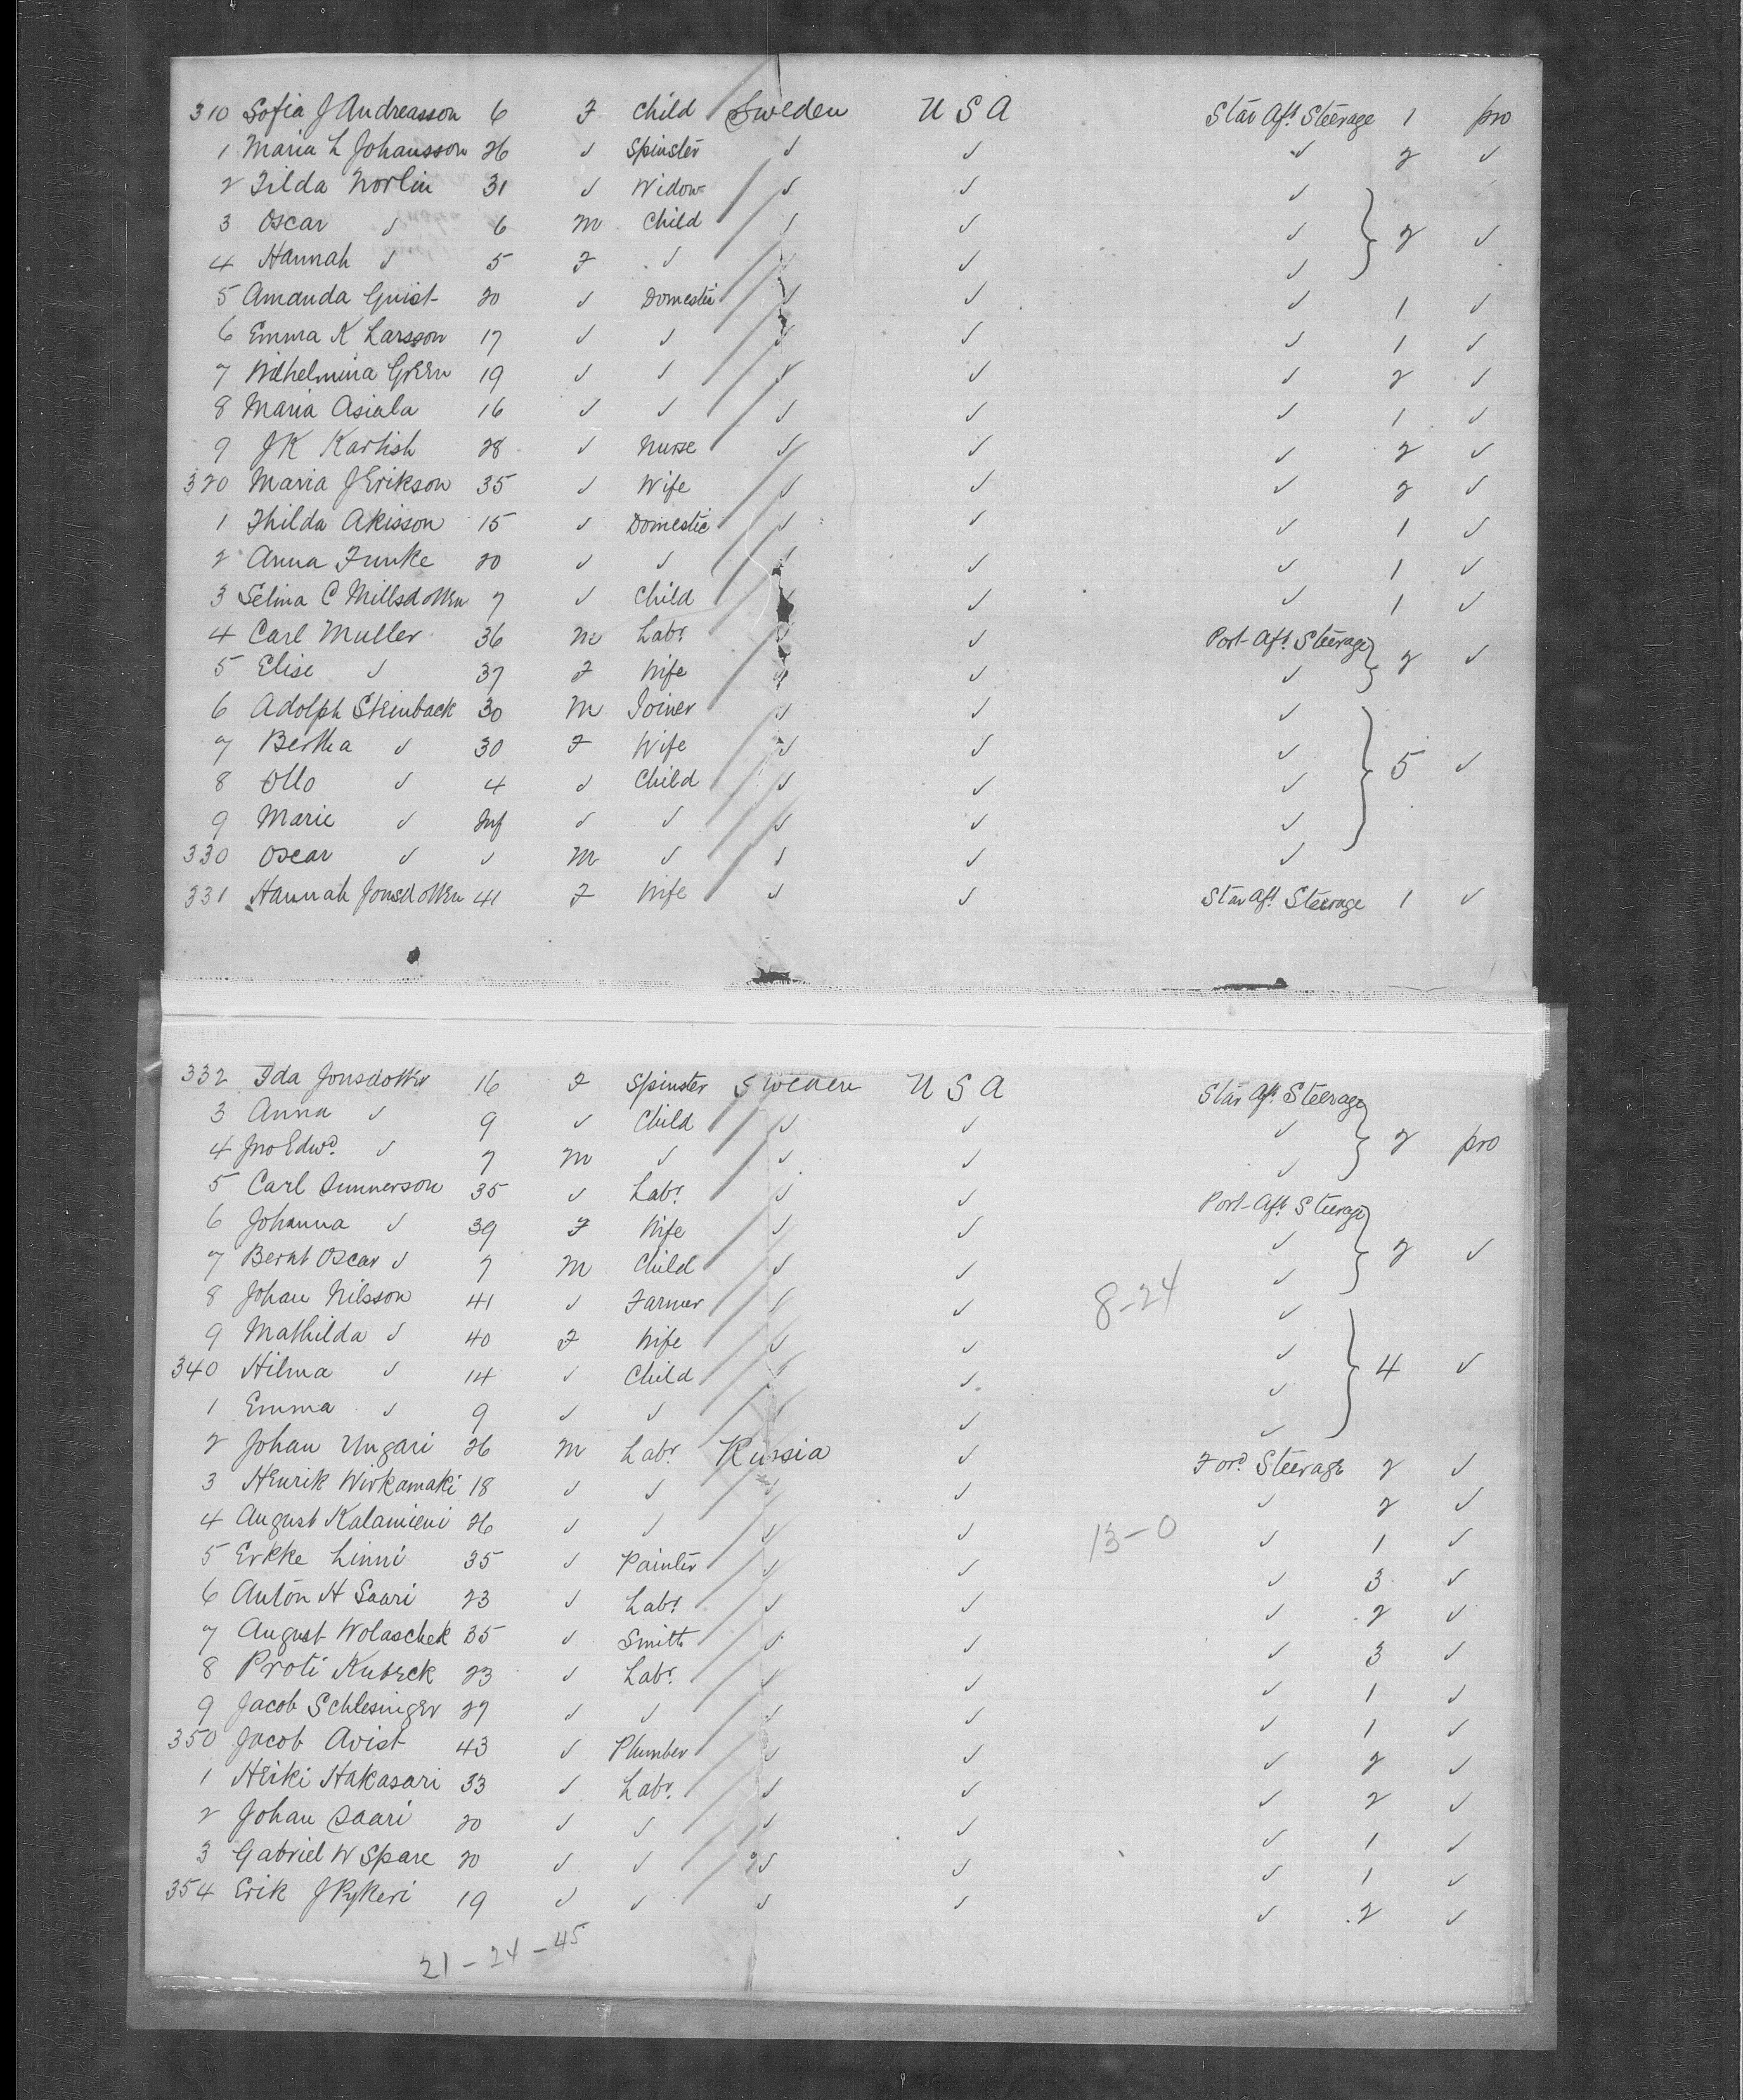 310 Sofia J Andreasson 6 F Child Sweden U S A Star Aft Steerage 1 pro
1 Maria L Johansson 26 ✓ Spinster ✓ ✓ ✓ 2 ✓
2 Tilda Norlin 31 ✓ Widow ✓ ✓ ✓
3 Oscar ✓ 6 M Child ✓ ✓ ✓ } 2 ✓
4 Hannah ✓ 5 F ✓ ✓ ✓ ✓
5 Amanda Quist 20 ✓ Domestic ✓ ✓ ✓ 1 ✓
6 Emma K Larsson 17 ✓ ✓ ✓ ✓ ✓ 1 ✓
7 Wilhelmina Green 19 ✓ ✓ ✓ ✓ ✓ 2 ✓
8 Maria Asiala 16 ✓ ✓ ✓ ✓ ✓ 1 ✓
9 J K Kartish 28 ✓ Nurse ✓ ✓ ✓ 2 ✓
320 Maria J Erikson 35 ✓ Wife ✓ ✓ ✓ 2 ✓
1 Thilda Akisson 15 ✓ Domestic ✓ ✓ ✓ 1 ✓
2 Anna Funke 20 ✓ ✓ ✓ ✓ ✓ 1 ✓
3 Selina C Millsdotten 7 ✓ Child ✓ ✓ ✓ 1 ✓
4 Carl Muller 36 M Labr ✓ ✓ Port Aft Steerage } 2 ✓
5 Elise ✓ 37 F Wife ✓ ✓ ✓
6 Adolph Steinback 30 M Joiner ✓ ✓ ✓
7 Bertha ✓ 30 F Wife ✓ ✓ ✓ } 5 ✓
8 Otto ✓ 4 ✓ Child ✓ ✓ ✓
9 Marie ✓ Inf ✓ ✓ ✓ ✓ ✓
330 Oscar ✓ ✓ M ✓ ✓ ✓ ✓
331 Hannah Jonsdotten 41 F Wife ✓ ✓ Star Aft Steerage 1 ✓
332 Ida Jonsdotter 16 F Spinster Sweden U S A Star Aft Steerage
3 Anna ✓ 9 ✓ Child ✓ ✓ ✓ } 2 pro
4 Jno Edwd ✓ 7 M ✓ ✓ ✓ ✓
5 Carl Gunnerson 35 ✓ Labr ✓ ✓ Port Aft Steerage
6 Johanna ✓ 39 F Wife ✓ ✓ ✓ } 2 ✓
7 Bernt Oscar ✓ 7 M Child ✓ ✓ ✓
8 Johan Nilsson 41 ✓ Farmer ✓ ✓ 8-24 ✓
9 Mathilda ✓ 40 F Wife ✓ ✓ ✓ } 4 ✓
340 Hilma ✓ 14 ✓ Child ✓ ✓ ✓
1 Emma ✓ 9 ✓ ✓ ✓ ✓ ✓
2 Johan Ungari 26 M Labr Russia ✓ Ford Steerage 2 ✓
3 Henrik Wirkamaki 18 ✓ ✓ ✓ ✓ ✓ 2 ✓
4 August Kalamieni 26 ✓ ✓ ✓ ✓ 13-0 ✓ 1 ✓
5 Erkke Linni 35 ✓ Painter ✓ ✓ ✓ 3 ✓
6 Anton H Saari 23 ✓ Labr ✓ ✓ ✓ 2 ✓
7 August Wolaschek 35 ✓ Smith ✓ ✓ ✓ 3 ✓
8 Proti Kubeck 23 ✓ Labr ✓ ✓ ✓ 1 ✓
9 Jacob Schlesinger 27 ✓ ✓ ✓ ✓ ✓ 1 ✓
350 Jacob Avist 43 ✓ Plumber ✓ ✓ ✓ 2 ✓
1 Heiki Hakasari 33 ✓ Labr ✓ ✓ ✓ 2 ✓
2 Johan Saari 20 ✓ ✓ ✓ ✓ ✓ 1 ✓
3 Gabriel W Spare 20 ✓ ✓ ✓ ✓ ✓ 1 ✓
354 Erik J Pykeri 19 ✓ ✓ ✓ ✓ ✓ 2 ✓
21-24-45